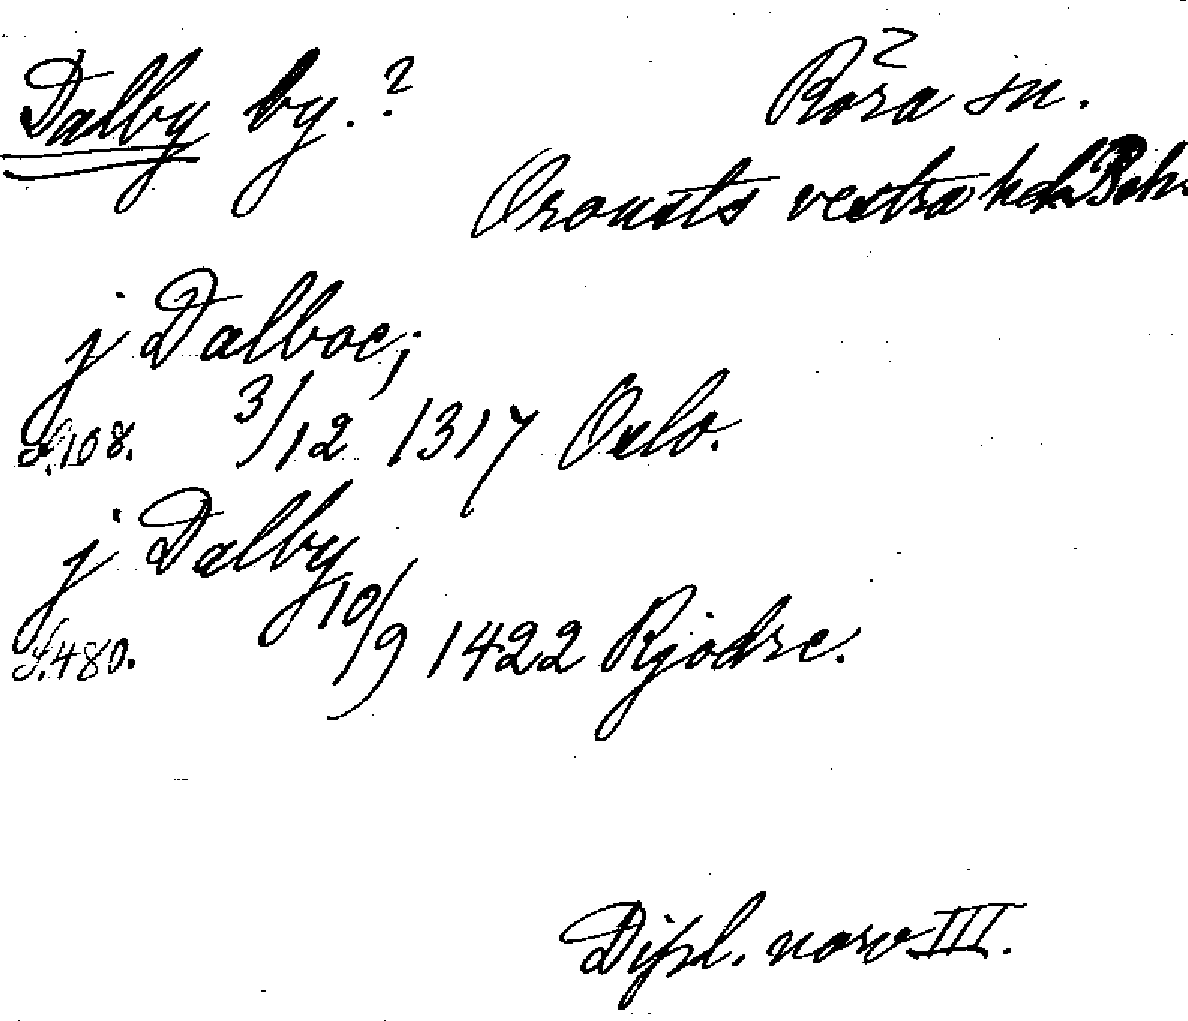 Dalby by.? Röra sn.
Orousts vestra hd Boh.
j Dalboe;
S.108. 3/12 1317 Oslo.
j Dalby
S.480. 10/9 1422 Rjodre.
Dipl. norv III.